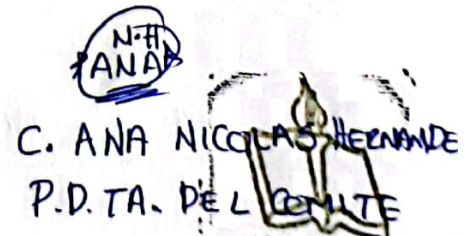 N.H
ANA
C. ANA NICOLAS HERNANDE
P.D.TA. DEL COMITE